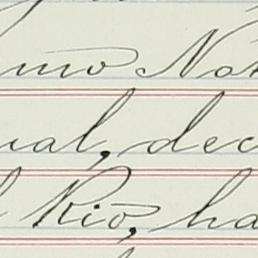 mo No
ual, dec
Rio, ha